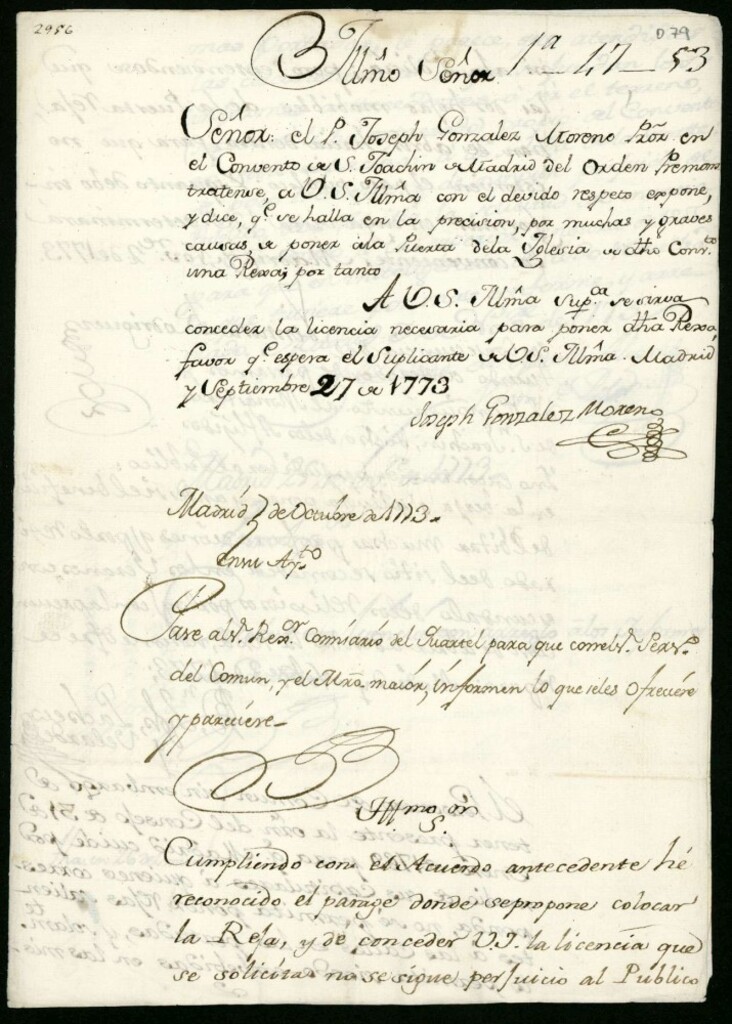 2956
D 79
Illmo Señor 1a - 47 - 53
Señor: el P. Joseph Gonzalez Moreno Pror. en
el Convento de S. Joachin de Madrid del Orden Premons
tratense, a V. S. Illma con el devido respeto expone,
y dice, qe. se halla en la precision, por muchas y graves
causas, de poner à la Puerta de la Iglesia de dho Convto
una Rexa; por tanto
A V. S. Illma Suppca se sirva
conceder la licencia necesaria para poner dha Rexa
favor qe. espera el Suplicante de V.S. Illma. Madrid
y Septiembre 27 de 1773
Joseph Gonzalez Moreno
Madrid 7 de Octubre de 1773.
en su Ayto
Pase al Sr. Rexor Comisario del Quartel para que con el Sr.
del Comun, y el Mro. maior, informen lo que se les ofreciere
y pareciere
Illmo Sor
Cumpliendo con el Acuerdo antecedente hé
reconocido el parage donde se propone colocar
la Reja, y de conceder V.I. la licencia que
se solicita no se sigue perjuicio al Publico